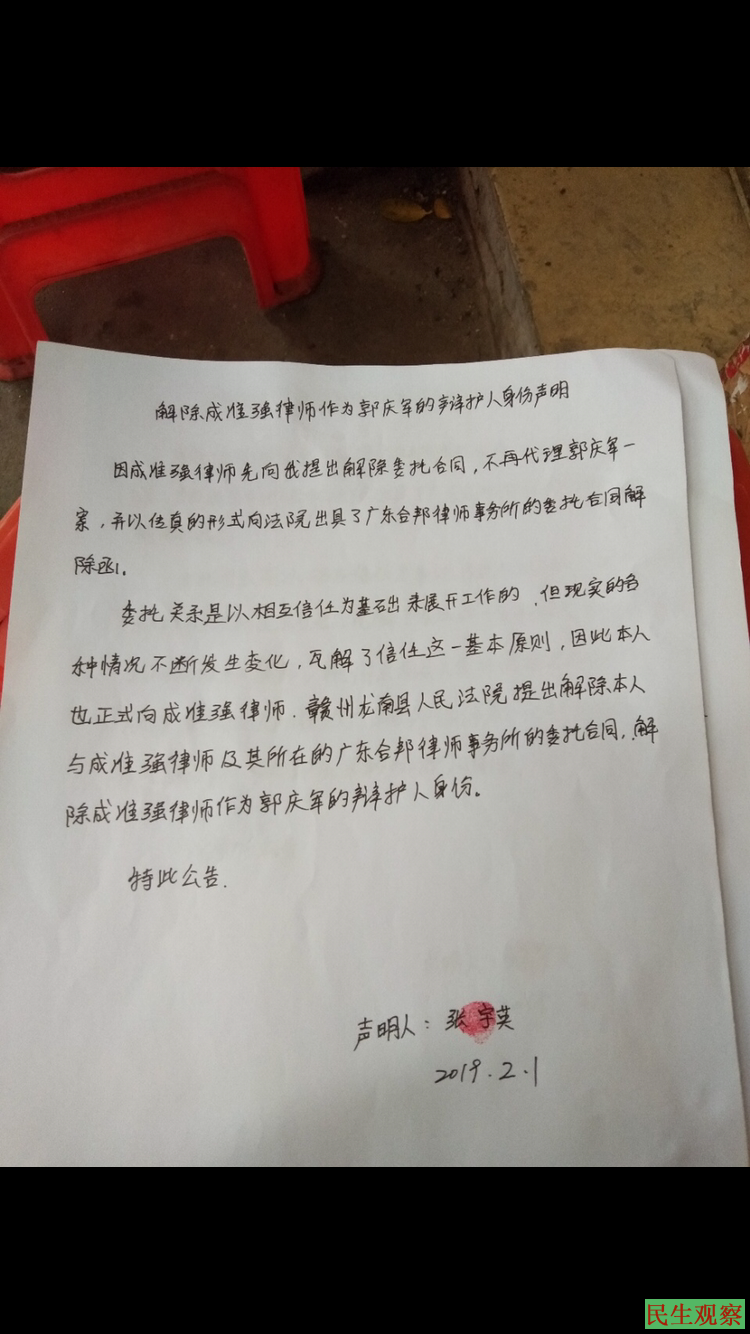 解除成准强律师作为郭庆军的辩护人身份声明
因成准强律师先向我提出解除委托合同，不再代理郭庆军一
案，并以传真的形式向法院出具了广东合邦律师事务所的委托合同解
除函。
委托关系是以相互信任为基础来展开工作的，但现实的各
种情况不断发生变化，瓦解了信任这一基本原则，因此本人
也正式向成准强律师、赣州龙南县人民法院提出解除本人
与成准强律师及其所在的广东合邦律师事务所的委托合同，解
除成准强律师作为郭庆军的辩护人身份。
特此公告.
声明人：张宇英
2019.2.1
民生观察